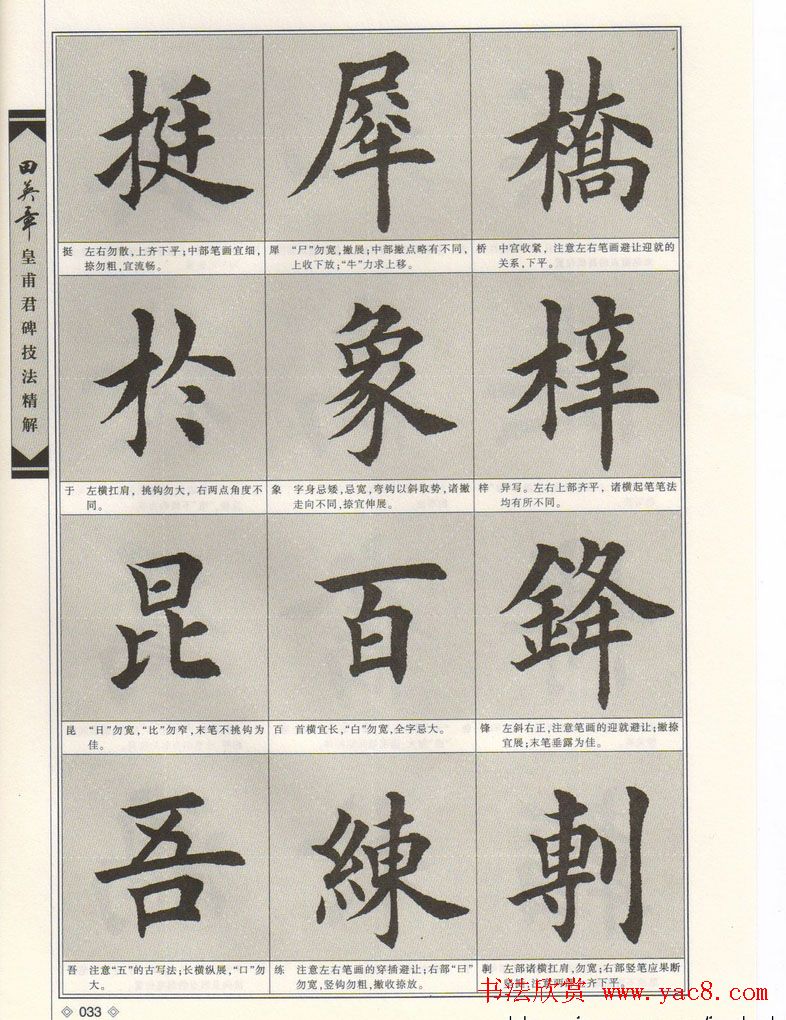 田英章
皇甫君碑技法精解
挺 犀 橋
挺 左右勿散，上齐下平；中部笔画宜细，
捺勿粗，宜流畅。
犀 “尸”勿宽，撇展；中部撇点略有不同，
上收下放；“牛”力求上移。
桥 中宫收紧，注意左右笔画避让迎就的
关系，下平。
於 象 梓
于 左横扛肩，挑钩勿大，右两点角度不
同。
象 字身忌矮，忌宽，弯钩以斜取势，诸撇
走向不同，捺宜伸展。
梓 异写。左右上部齐平，诸横起笔笔法
均有所不同。
昆 百 鋒
昆 “日”勿宽，“比”勿窄，末笔不挑钩为
佳。
百 首横宜长，“白”勿宽，全字忌大。
锋 左斜右正，注意笔画的迎就避让；撇捺
宜展；末笔垂露为佳。
吾 練 剸
吾 注意“五”的古写法；长横纵展，“口”勿
大。
练 注意左右笔画的穿插避让；右部“曰”
勿宽，竖钩勿粗，撇收捺放。
剸 左部诸横扛肩，勿宽；右部竖笔应果断
下平。
书法欣赏 www.yac8.com
033